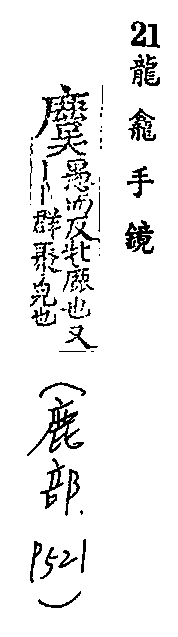 21龍龕手鏡
麌
愚雨反牝鹿也又
丨群聚皃也
(鹿部.
P521)